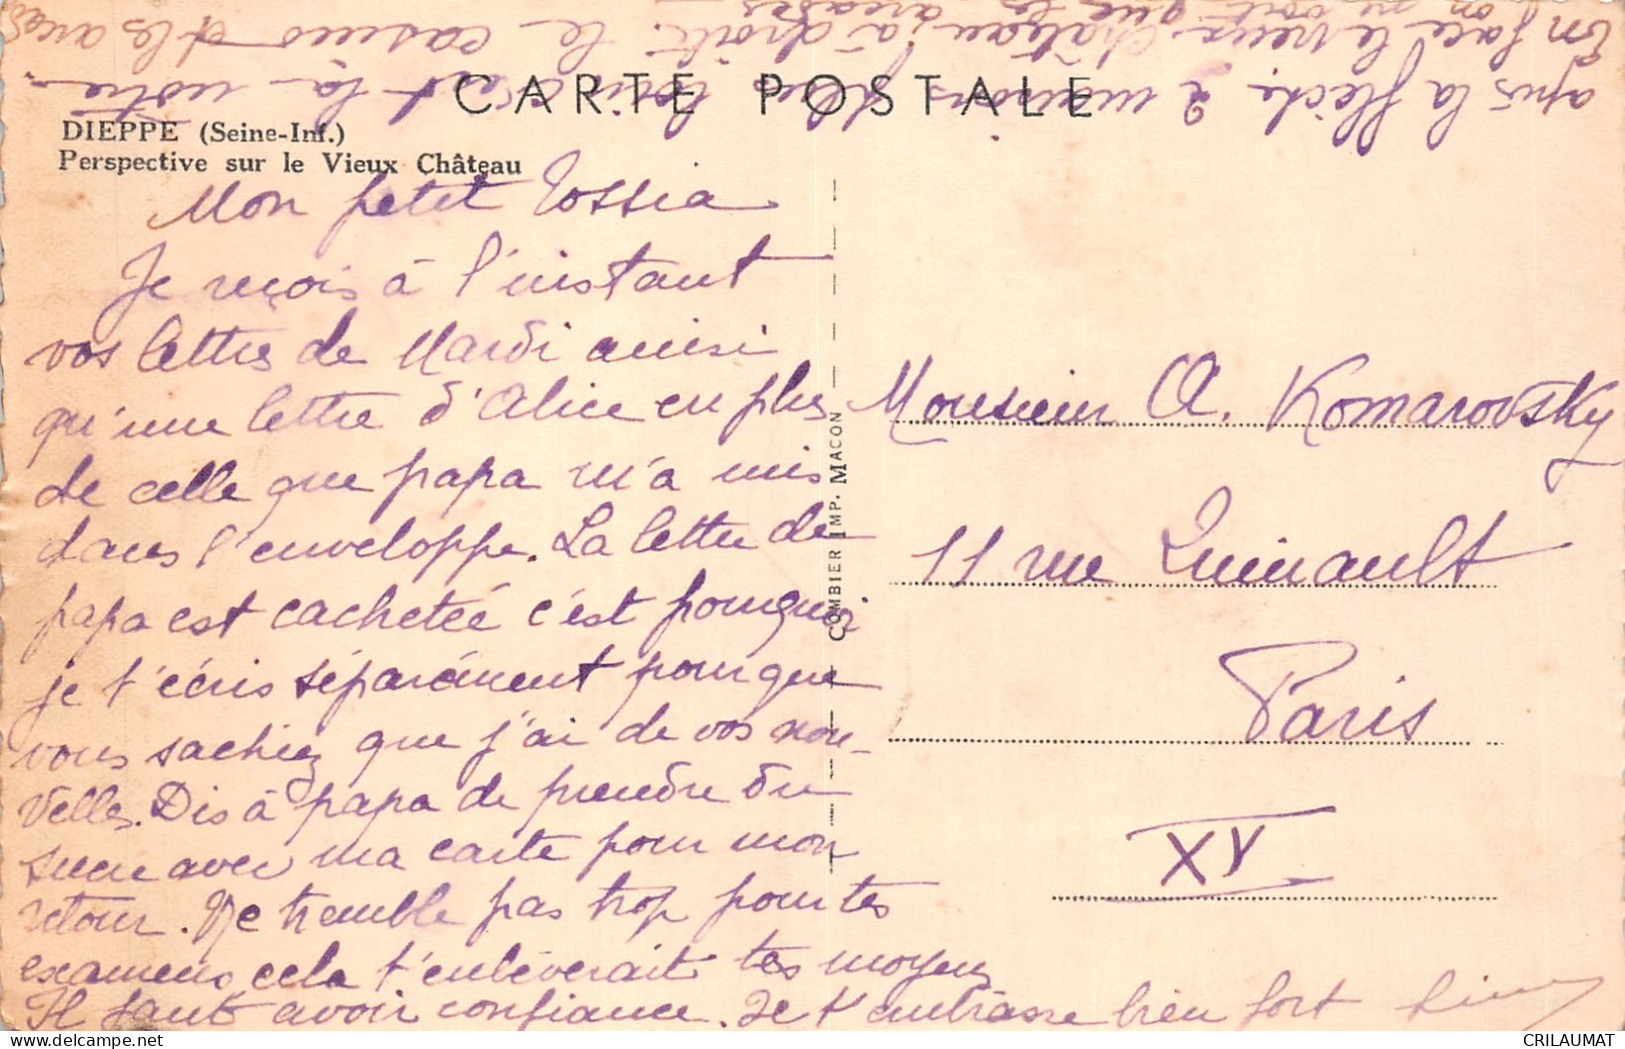 En face le vieux château, à droite le casino et les arcades
on ne voit que les arcades
après la flèche 2 maisons plus loin c'est la nôtre
CARTE POSTALE
DIEPPE (Seine-Inf.)
Perspective sur le Vieux Château
Mon petit Tossia
Je reçois à l'instant
vos lettres de Mardi ainsi
qu'une lettre d'Alice en plus
de celle que papa m'a mis
dans l'enveloppe. La lettre de
papa est cachetée c'est pourquoi
je t'écris séparément pour que
vous sachiez que j'ai de vos nou-
velles. Dis à papa de prendre du
sucre avec ma carte pour mon
retour. Ne tremble pas trop pour tes
examens, cela t'enlèverait tes moyens
Il faut avoir confiance. Je t'embrasse bien fort
COMBIER IMP. MACON
Monsieur A. Komarovsky
11 rue Quinault
Paris
XV
CRILAUMAT